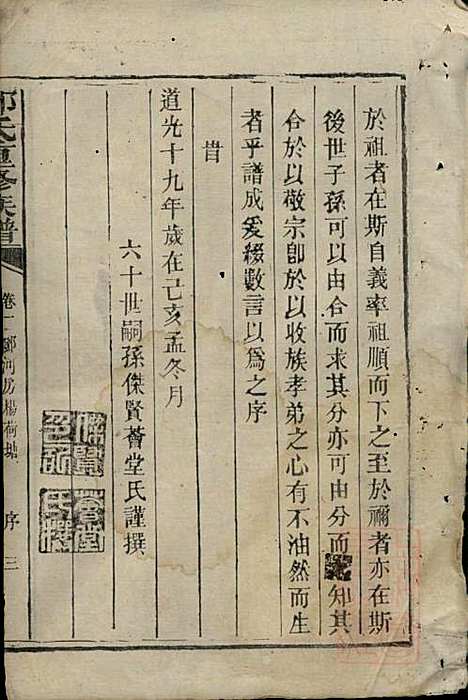 於祖者在斯自義率祖順而下之至於禰者亦在斯
後世子孫可以由合而求其分亦可由分而知其
合於以敬宗卽於以收族孝弟之心有不油然而生
者乎譜成爰綴數言以爲之序
旹
道光十九年歲在己亥孟冬月
六十世嗣孫傑賢薈堂氏謹撰
氏重修族譜
卷一
河房楊荷塘
序
三